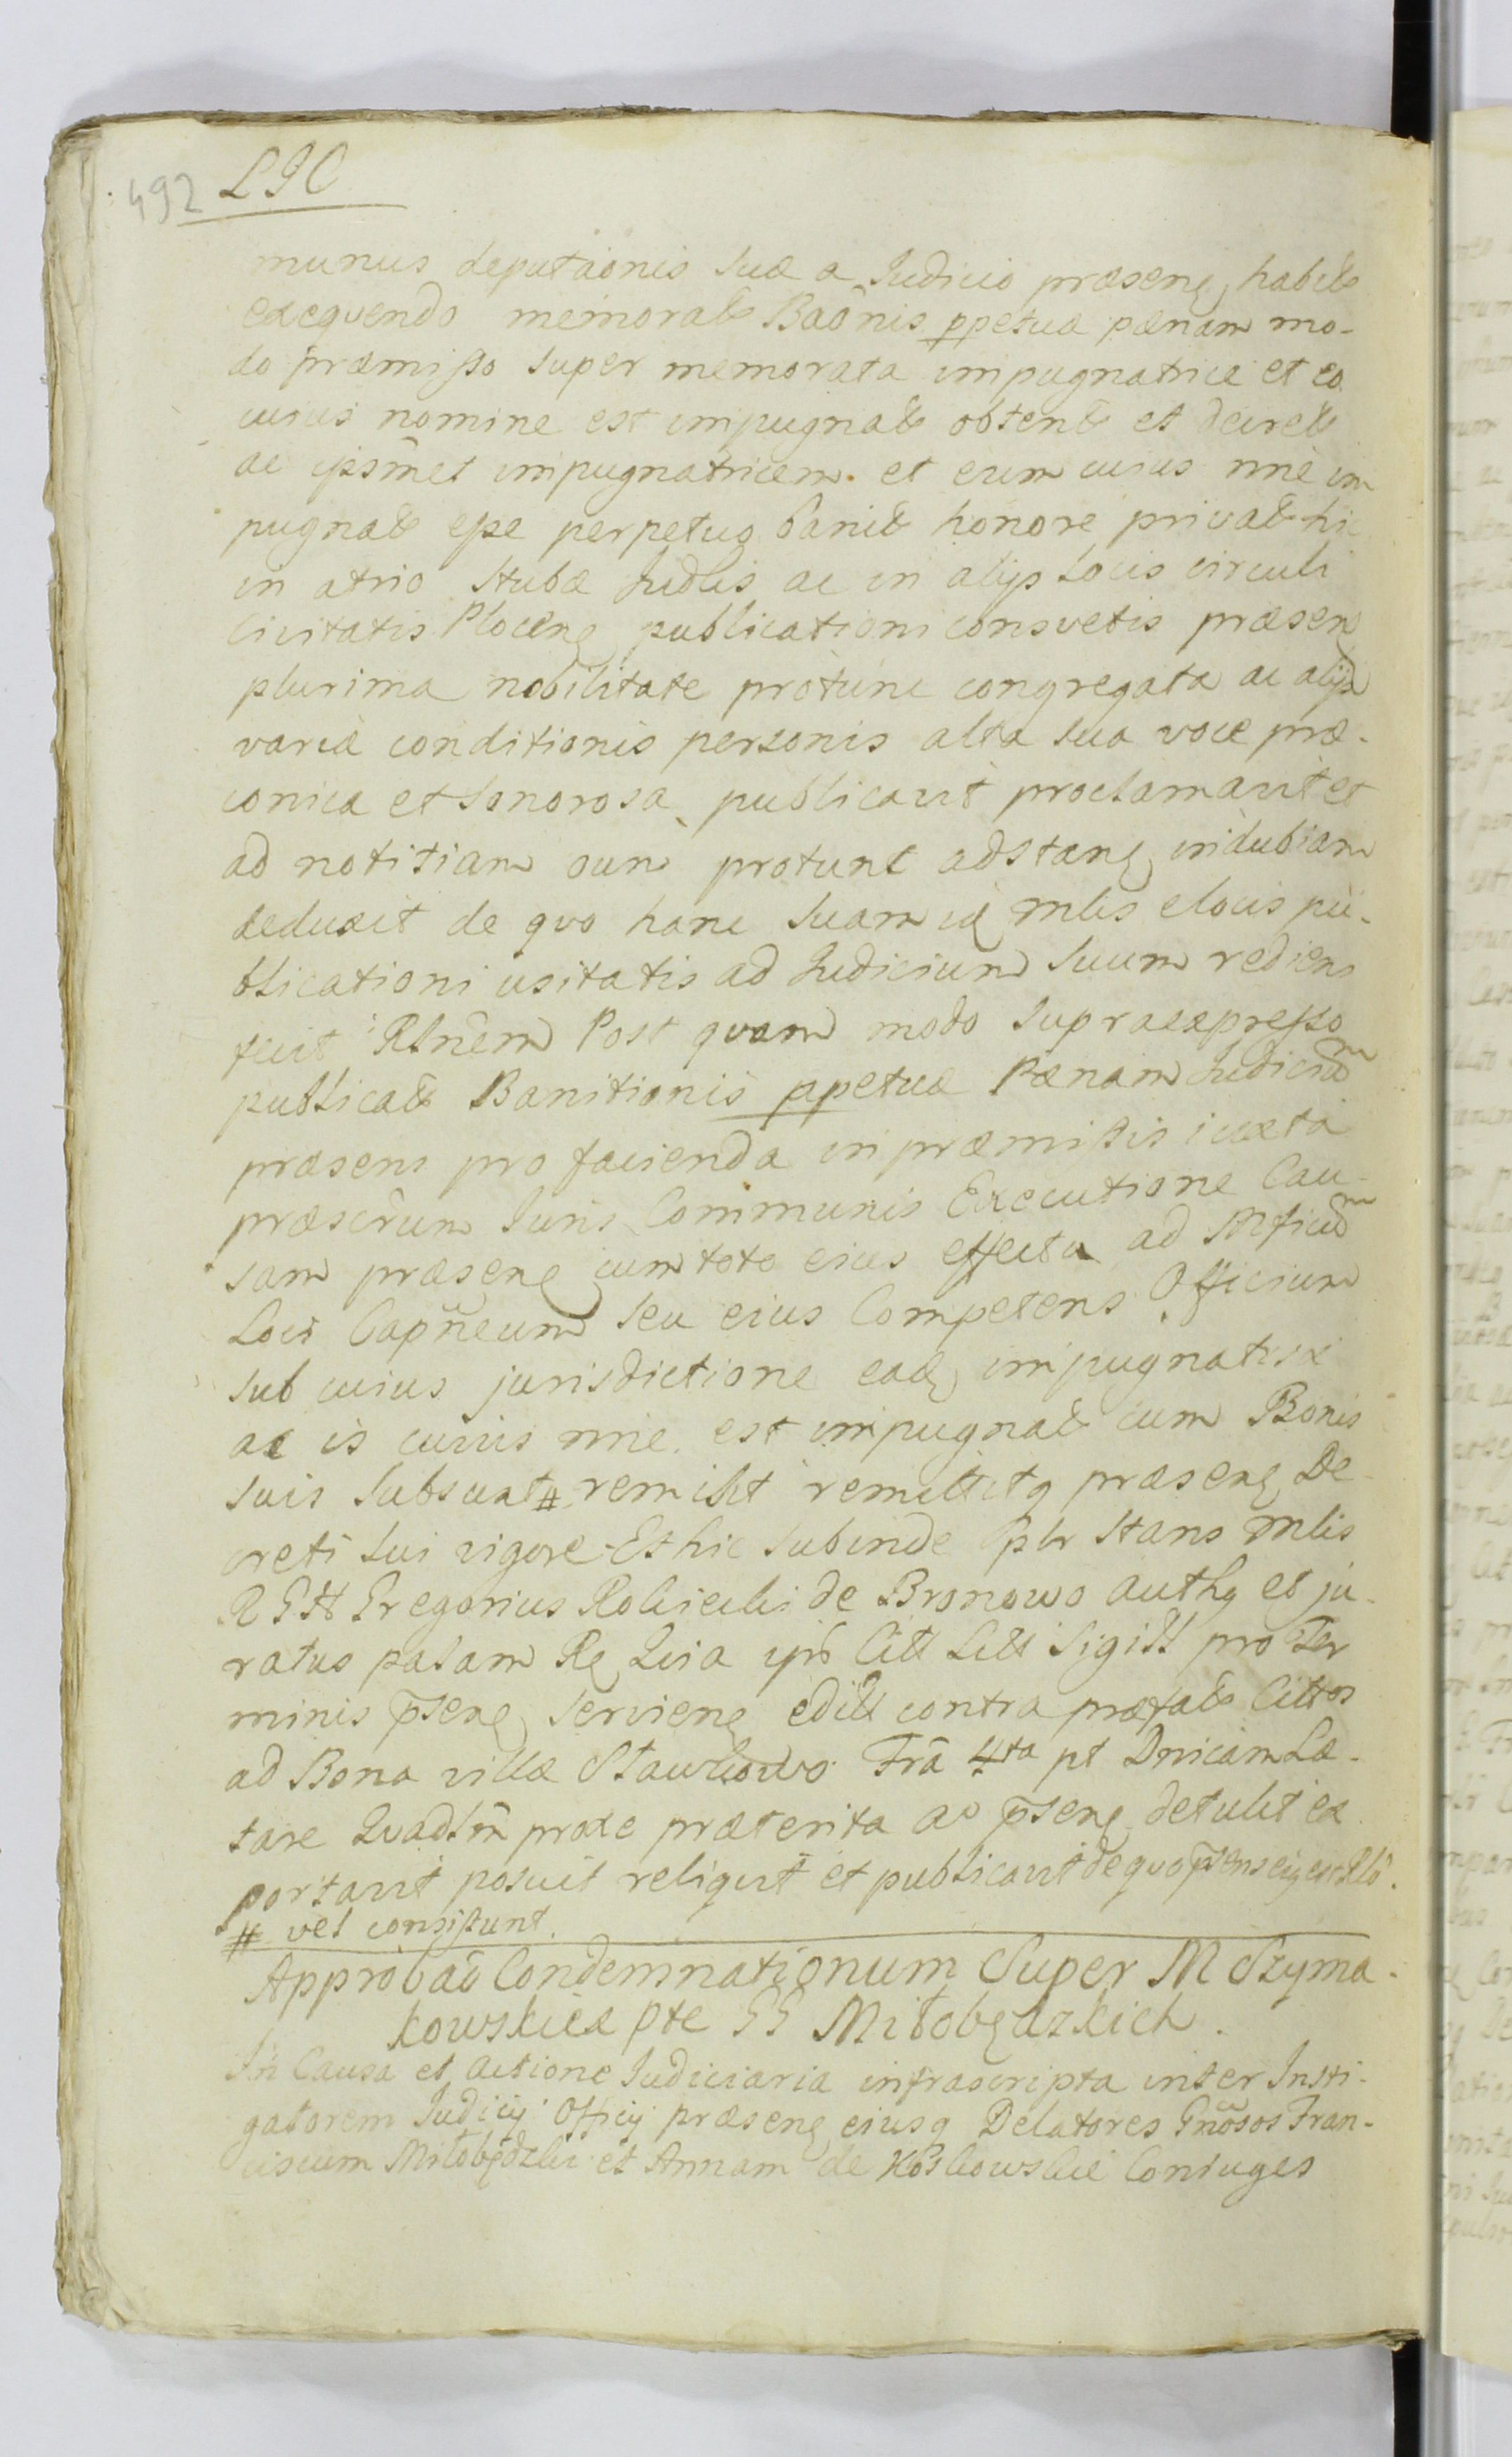 492 LIC
munus deputaõnis suæ a Judicio præsenẹ habit
exequendo memorat Baõnis ppetuæ pænam mo-
do præmisso super memorata impugnatrice et eo
cuius nomine est impugnat obtent et decret
ac ipsm̃et impugnatricem et eum cuius nn̄e im
pugnat esse perpetuo banit honore privat hic
in atrio Stubæ Judlis ac in alijs Locis circuli
Civitatis Plocenẹ publicationi consvetis præsen
plurima nobilitate protunc congregata ac alijs
variæ conditionis personis alta sua voce præ-
conica et sonorosa publicavit proclamavit et
ad notitiam oun protunc adstanẹ indubiam
deduxit de qvo hanc suam idẹ mlis e locis pu-
blicationi usitatis ad Judicium suum rediens
fecit Rlnem Post quam modo supraexpresso
publicat Banitionis ppetuæ Pænam Judicium
præsens pro facienda in præmissis iuxta
præscrum Juris Communis Executione Cau-
sam præsenẹ cum toto eius effectu ad Mficum
Loci Capñeum seu eius Competens Officium
sub cuius jurisdictione eadẹ impugnatrix
ac is cuius nn̄e est impugnat cum Bonis
suis subsunt # remisit remittitq præsenẹ De-
creti sui vigore Et hic subinde plr Stans mlis
R G N Gregorius Rolicelii de Bronowo authẹ et ju-
ratus palam Rẹ Quia ips Citt Litt Sigill pro Ter
minis p̄senẹ servienẹ edit contra præfat Cittos
ad Bona villæ Stawkowo Fra 4ta pt Dnicam Læ-
tare Qvadlm̃ proxe præterita ao p̄senẹ detulit ex
portavit posuit reliqvit et publicavit de qvo p̄sens eiẹ est Rlõ.
# vel consistunt.
Approbaõ Condemnationum Super M Szyma-
kowskiée pte GG Miłobędzkich.
In Causa et Actione Judiciaria infrascripta inter Insti-
gatorem Judicij Officij præsenẹ eiusq Delatores Gñosos Fran-
ciscum Miłobędzki et Annam de Koskowskie Coniuges